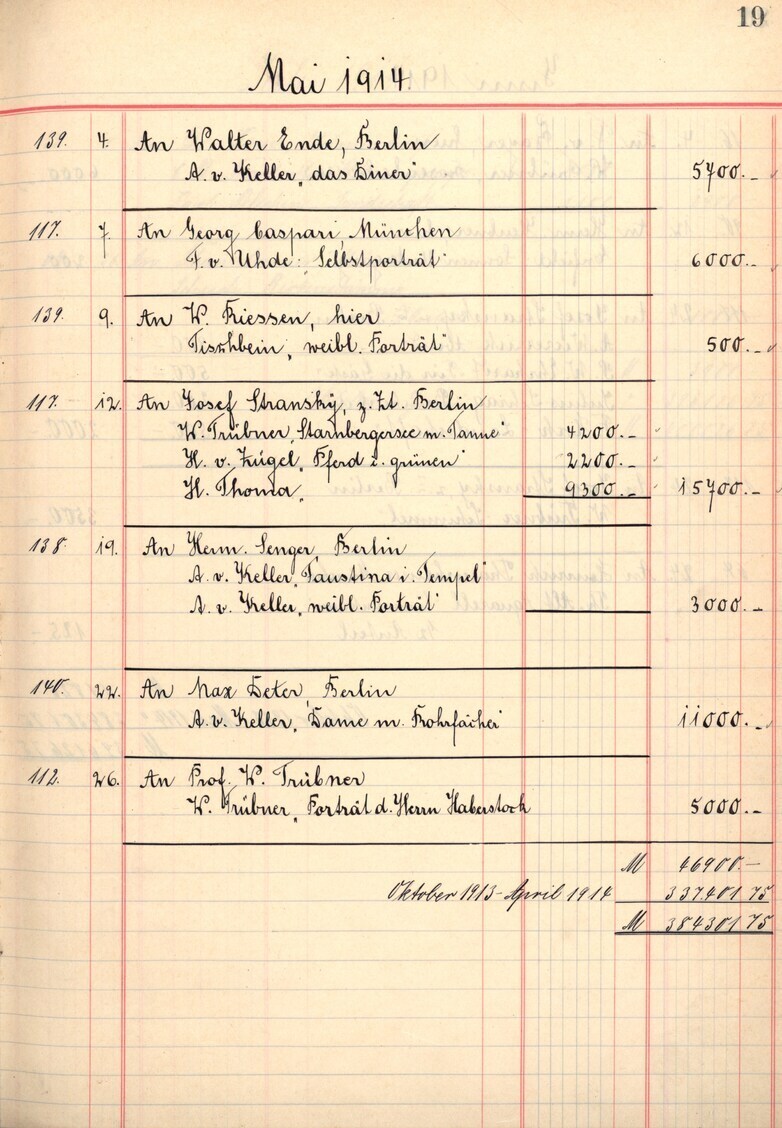 19
Mai 1914
139. 4. An Walter Ende, Berlin
A. v. Keller „das Diner“ 5700.-
117. 7. An Georg Caspari, München
F. v. Uhde: Selbstporträt“ 6000.-
139. 9. An W. Friessen, hier
Tischbein, weibl. Porträt“ 500.-
117. 12. An Josef Stransky, z. Zt. Berlin
W. Trübner, Starnbergersee m. Tanne“ 4200.-
H. v. Zügel, Pferd i. grünen“ 2200.-
H. Thoma, 9300.- 15700.-
138. 19. An Herm. Senger, Berlin
A. v. Keller, Faustina i. Tempel“
A. v. Keller, weibl. Porträt“ 3000.-
140. 22. An Max Deter, Berlin
A. v. Keller, Dame m. Rohrfächer“ 11000.-
112. 26. An Prof. W. Trübner
W. Trübner, Porträt d. Herrn Haberstock 5000.-
M 46900.-
Oktober 1913-April 1914 337401 75
M 384301 75